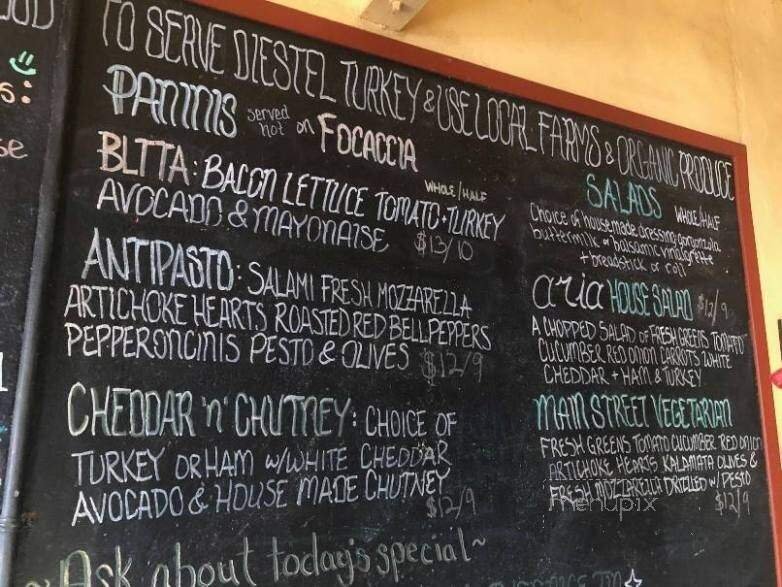 TO SERVE DIESTEL TURKEY & USE LOCAL FARMS & ORGANIC PRODUCE
PANINIS served hot on FOCACCIA
WHOLE/HALF
BLTTA: BACON LETTUCE TOMATO·TURKEY
AVOCADO & MAYONAISE $13/10
ANTIPASTO: SALAMI FRESH MOZZARELLA
ARTICHOKE HEARTS ROASTED RED BELL PEPPERS
PEPPERONCINIS PESTO & OLIVES $12/9
CHEDDAR 'n' CHUTNEY: CHOICE OF
TURKEY OR HAM W/WHITE CHEDDAR
AVOCADO & HOUSE MADE CHUTNEY
$12/9
~Ask about today's special~
SALADS WHOLE/HALF
Choice of housemade dressing gorgonzola
buttermilk or balsamic vinaigrette
+ breadstick or roll
aria HOUSE SALAD $12/9
A CHOPPED SALAD OF FRESH GREENS TOMATO
CUCUMBER RED ONION CARROTS WHITE
CHEDDAR + HAM & TURKEY
MAIN STREET VEGETARIAN
FRESH GREENS TOMATO CUCUMBER RED ONION
ARTICHOKE HEARTS KALAMATA OLIVES &
FRESH MOZZARELLA DRIZLED W/ PESTO
$12/9
menupix